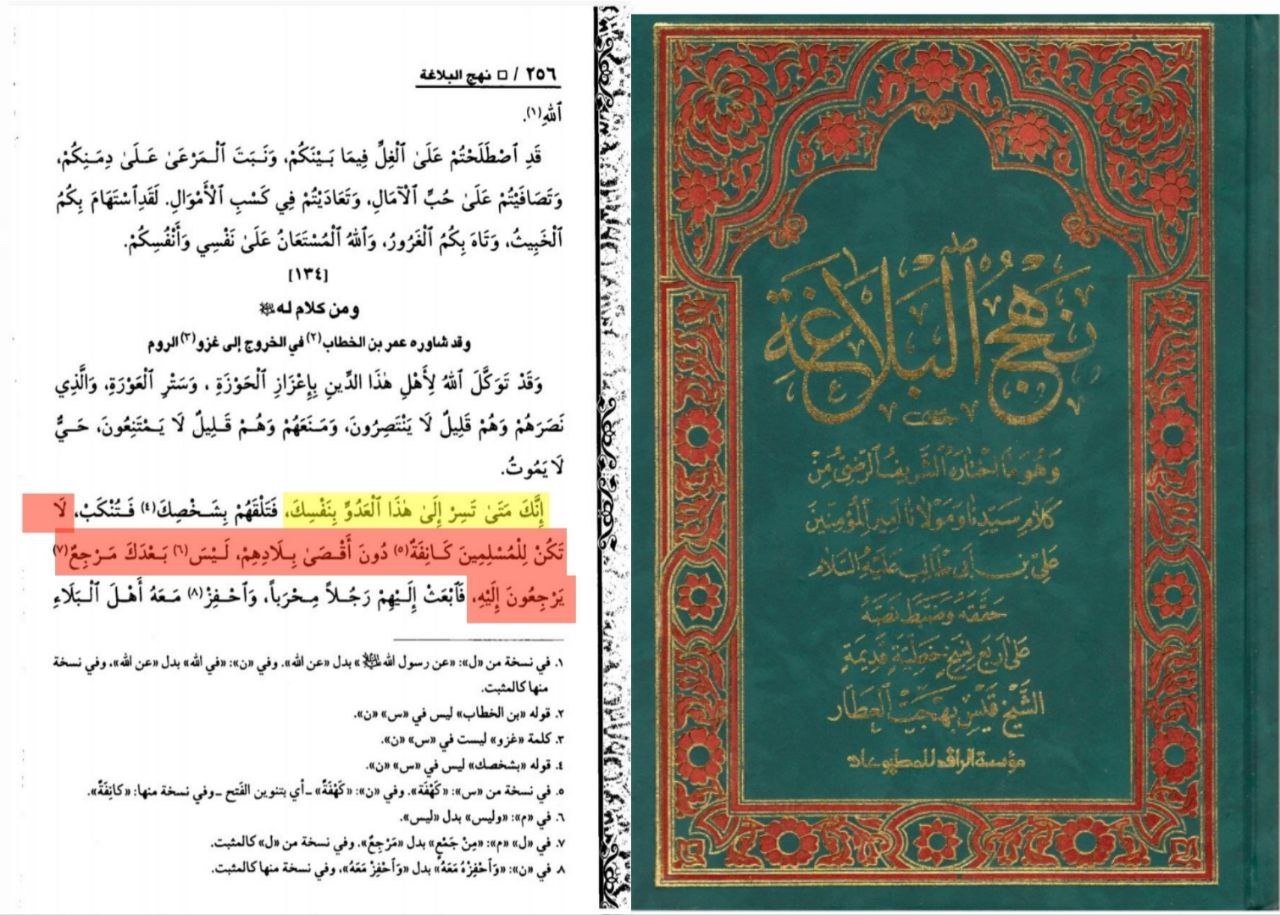 ٢٥٦ / □ نهج البلاغة
ٱللهِ(١).
قَدِ ٱصْطَلَحْتُمْ عَلَىٰ ٱلْغِلِّ فِيمَا بَيْنَكُمْ، وَنَبَتَ ٱلْمَرْعَىٰ عَلَىٰ دِمَنِكُمْ،
وَتَصَافَيْتُمْ عَلَىٰ حُبِّ ٱلْآمَالِ، وَتَعَادَيْتُمْ فِي كَسْبِ ٱلْأَمْوَالِ. لَقَدِٱسْتَهَامَ بِكُمُ
ٱلْخَبِيثُ، وَتَاهَ بِكُمُ ٱلْغَرُورُ، وَٱللهُ ٱلْمُسْتَعَانُ عَلَىٰ نَفْسِي وَأَنْفُسِكُمْ.
[١٣٤]
ومن كلام له ﷷ
وقد شاوره عمر بن الخطاب(٢) في الخروج إلى غزو(٣) الروم
وَقَدْ تَوَكَّلَ ٱللهُ لِأَهْلِ هٰذَا ٱلدِّينِ بِإِعْزَازِ ٱلْحَوْزَةِ ، وَسَتْرِ ٱلْعَوْرَةِ، وَٱلَّذِي
نَصَرَهُمْ وَهُمْ قَلِيلٌ لَا يَنْتَصِرُونَ، وَمَنَعَهُمْ وَهُمْ قَلِيلٌ لَا يَمْتَنِعُونَ، حَيٌّ
لَا يَمُوتُ.
إِنَّكَ مَتَىٰ تَسِرْ إِلَىٰ هٰذَا ٱلْعَدُوِّ بِنَفْسِكَ، فَتَلْقَهُمْ بِشَخْصِكَ(٤) فَتُنْكَبْ، لَا
تَكُنْ لِلْمُسْلِمِينَ كَانِفَةٌ(٥) دُونَ أَقْصَىٰ بِلَادِهِمْ، لَيْسَ(٦) بَعْدَكَ مَرْجِعٌ(٧)
يَرْجِعُونَ إِلَيْهِ، فَٱبْعَثْ إِلَيْهِمْ رَجُلاً مِحْرَباً، وَٱحْفِزْ(٨) مَعَهُ أَهْلَ ٱلْبَلَاءِ
١. في نسخة من «ل»: «عن رسول الله ﷺ» بدل «عن الله». وفي «ن»: «في الله» بدل «عن الله»، وفي نسخة
منها كالمثبت.
٢. قوله «بن الخطاب» ليس في «س» «ن».
٣. كلمة «غزو» ليست في «س» «ن».
٤. قوله «بشخصك» ليس في «س» «ن».
٥. في نسخة من «س»: «كَهْفَة». وفي «ن»: «كَهْفَةٌ» ـ أي بتنوين الفَتح ـ وفي نسخة منها: «كانِفَةٌ».
٦. في «م»: «وليس» بدل «ليس».
٧. في «ل» «م»: «مِنْ جَمْعٍ» بدل «مَرْجِعٌ». وفي نسخة من «ل» كالمثبت.
٨. في «ن»: «وَٱحْفِزْهُ مَعَهُ» بدل «وَٱحْفِزْ مَعَهُ»، وفي نسخة منها كالمثبت.
نَهْجُ البَلَاغَةِ
وَهُوَ مَا اخْتَارَهُ الشَّرِيفُ الرَّضِيُّ مِنْ
كَلَامِ سَيِّدِنَا وَمَوْلَانَا أَمِيرِ المُؤْمِنِينَ
عَلِيِّ بْنِ أَبِي طَالِبٍ عَلَيْهِ السَّلَام
حَقَّقَهُ وَضَبَطَ نَصَّهُ
عَلَى أَرْبَعِ نُسَخٍ خَطِّيَّةٍ قَدِيمَةٍ
الشَّيْخ قَيْس بَهْجَت العَطَّار
مؤسسة الرافد للمطبوعات